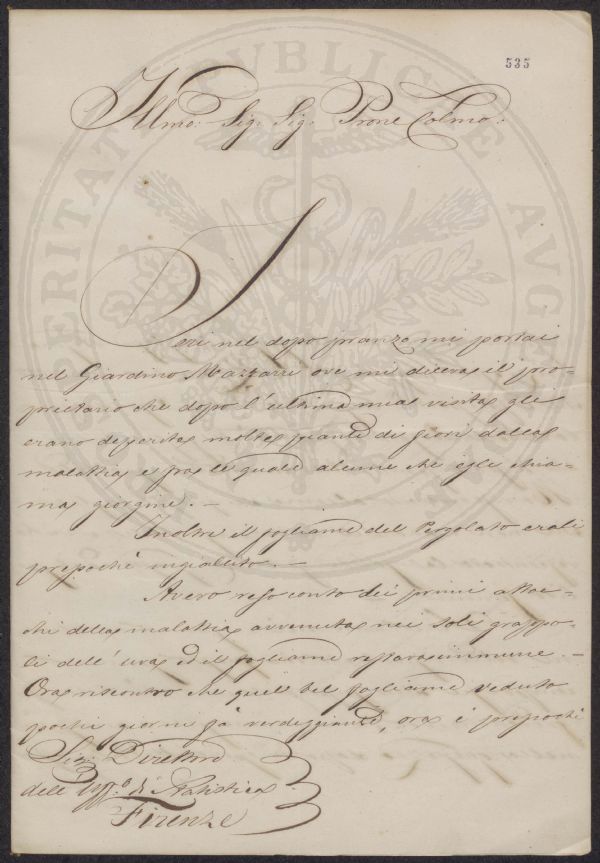 535
Illmo: Sig: Sig: Prone Colmo:
Ieri nel dopo pranzo mi portai
nel Giardino Mazzarri ove mi diceva il pro-
prietario che dopo l'ultima mia visita gli
erano deperita molte piante di fiori dalla
malattia e fra le quale alcune che egli chia-
ma giorgine. —
Inoltre il fogliame del Pergolato erasi
pressochè ingiallito. —
Avevo reso conto dei primi attac-
chi della malattia avvenuta nei soli grappo-
li dell'uva ed il fogliame restava immune. —
Ora riscontro che quel bel fogliame veduto
pochi giorni fà verdeggiante, ora è pressochè
Sig: Direttore
dell'Uffo. di Statistica
Firenze
PUBLICAE